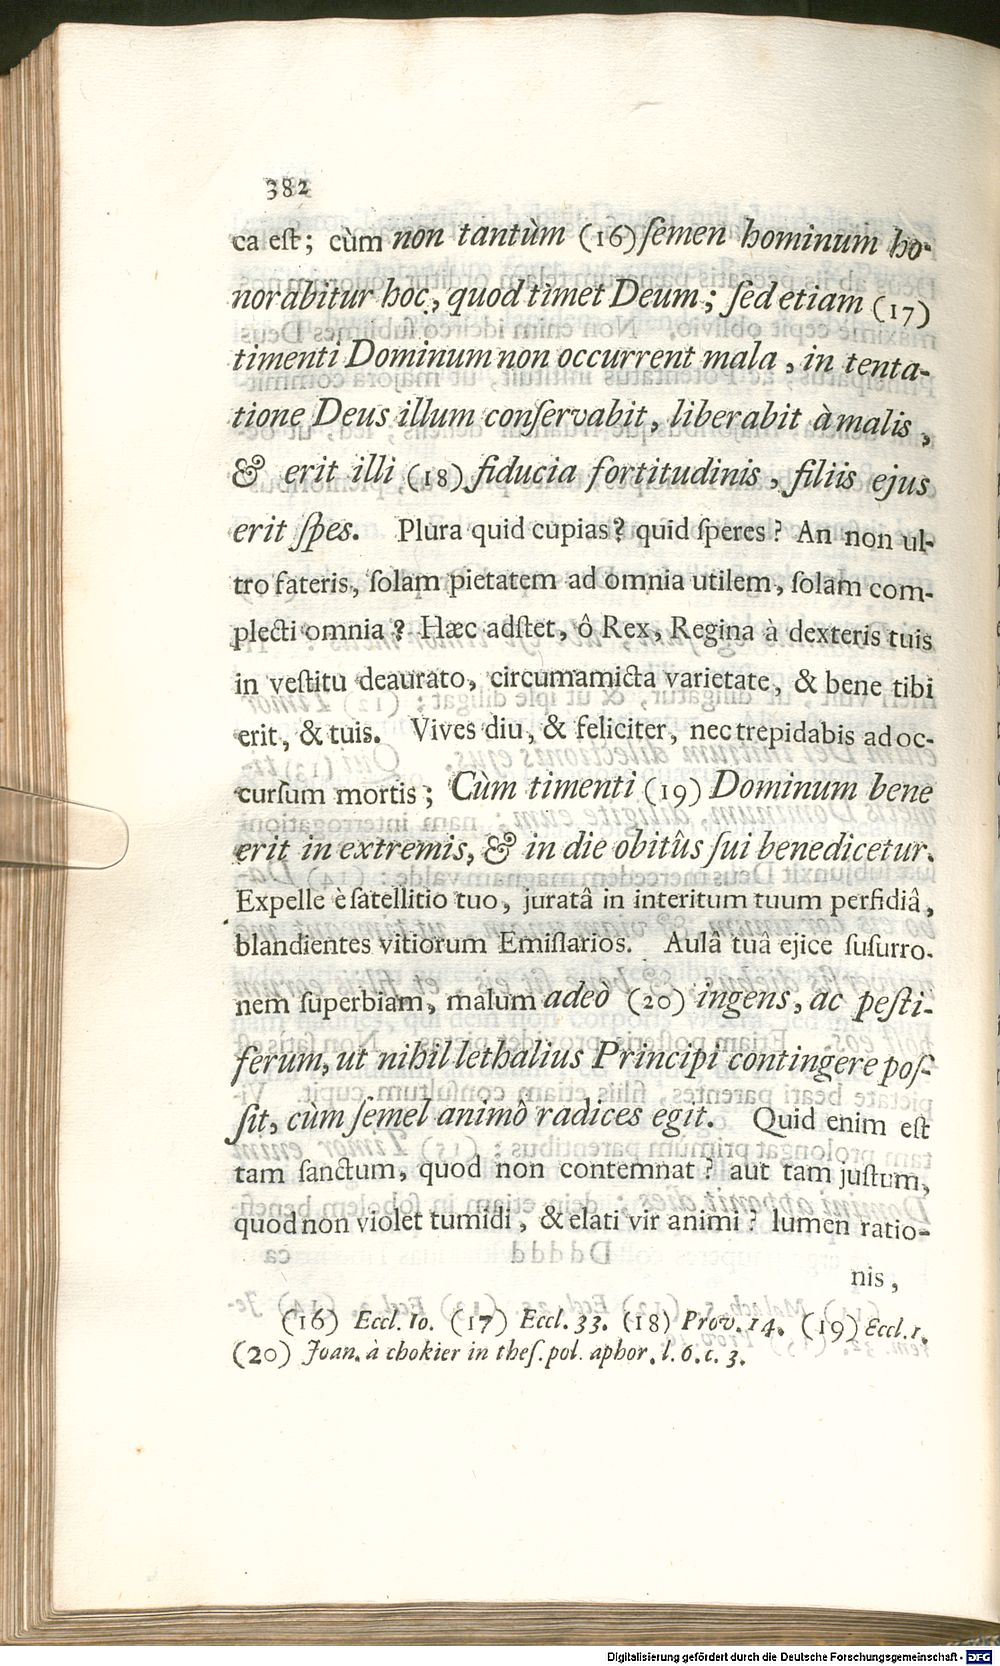 382
ca eſt; cùm non tantùm (16) ſemen hominum ho-
norabitur hoc, quod timet Deum; ſed etiam (17)
timenti Dominum non occurrent mala, in tenta-
tione Deus illum conſervabit, liberabit à malis,
& erit illi (18) fiducia fortitudinis, filiis ejus
erit ſpes. Plura quid cupias? quid ſperes? An non ul-
tro fateris, ſolam pietatem ad omnia utilem, ſolam com-
plecti omnia? Hæc adſtet, ô Rex, Regina à dexteris tuis
in veſtitu deaurato, circumamicta varietate, & bene tibi
erit, & tuis. Vives diu, & feliciter, nec trepidabis ad oc-
curſum mortis; Cùm timenti (19) Dominum bene
erit in extremis, & in die obitûs ſui benedicetur.
Expelle è ſatellitio tuo, juratâ in interitum tuum perfidiâ,
blandientes vitiorum Emiſſarios. Aulâ tuâ ejice ſuſurro-
nem ſuperbiam, malum adeò (20) ingens, ac peſti-
ferum, ut nihil lethalius Principi contingere poſ-
ſit, cùm ſemel animô radices egit. Quid enim eſt
tam ſanctum, quod non contemnat? aut tam juſtum,
quod non violet tumidi, & elati vir animi? lumen ratio-
nis,
(16) Eccl. 10. (17) Eccl. 33. (18) Prov. 14. (19) Eccl. 1.
(20) Joan. à chokier in theſ. pol. aphor. l. 6. c. 3.
Digitalisierung gefördert durch die Deutsche Forschungsgemeinschaft - DFG